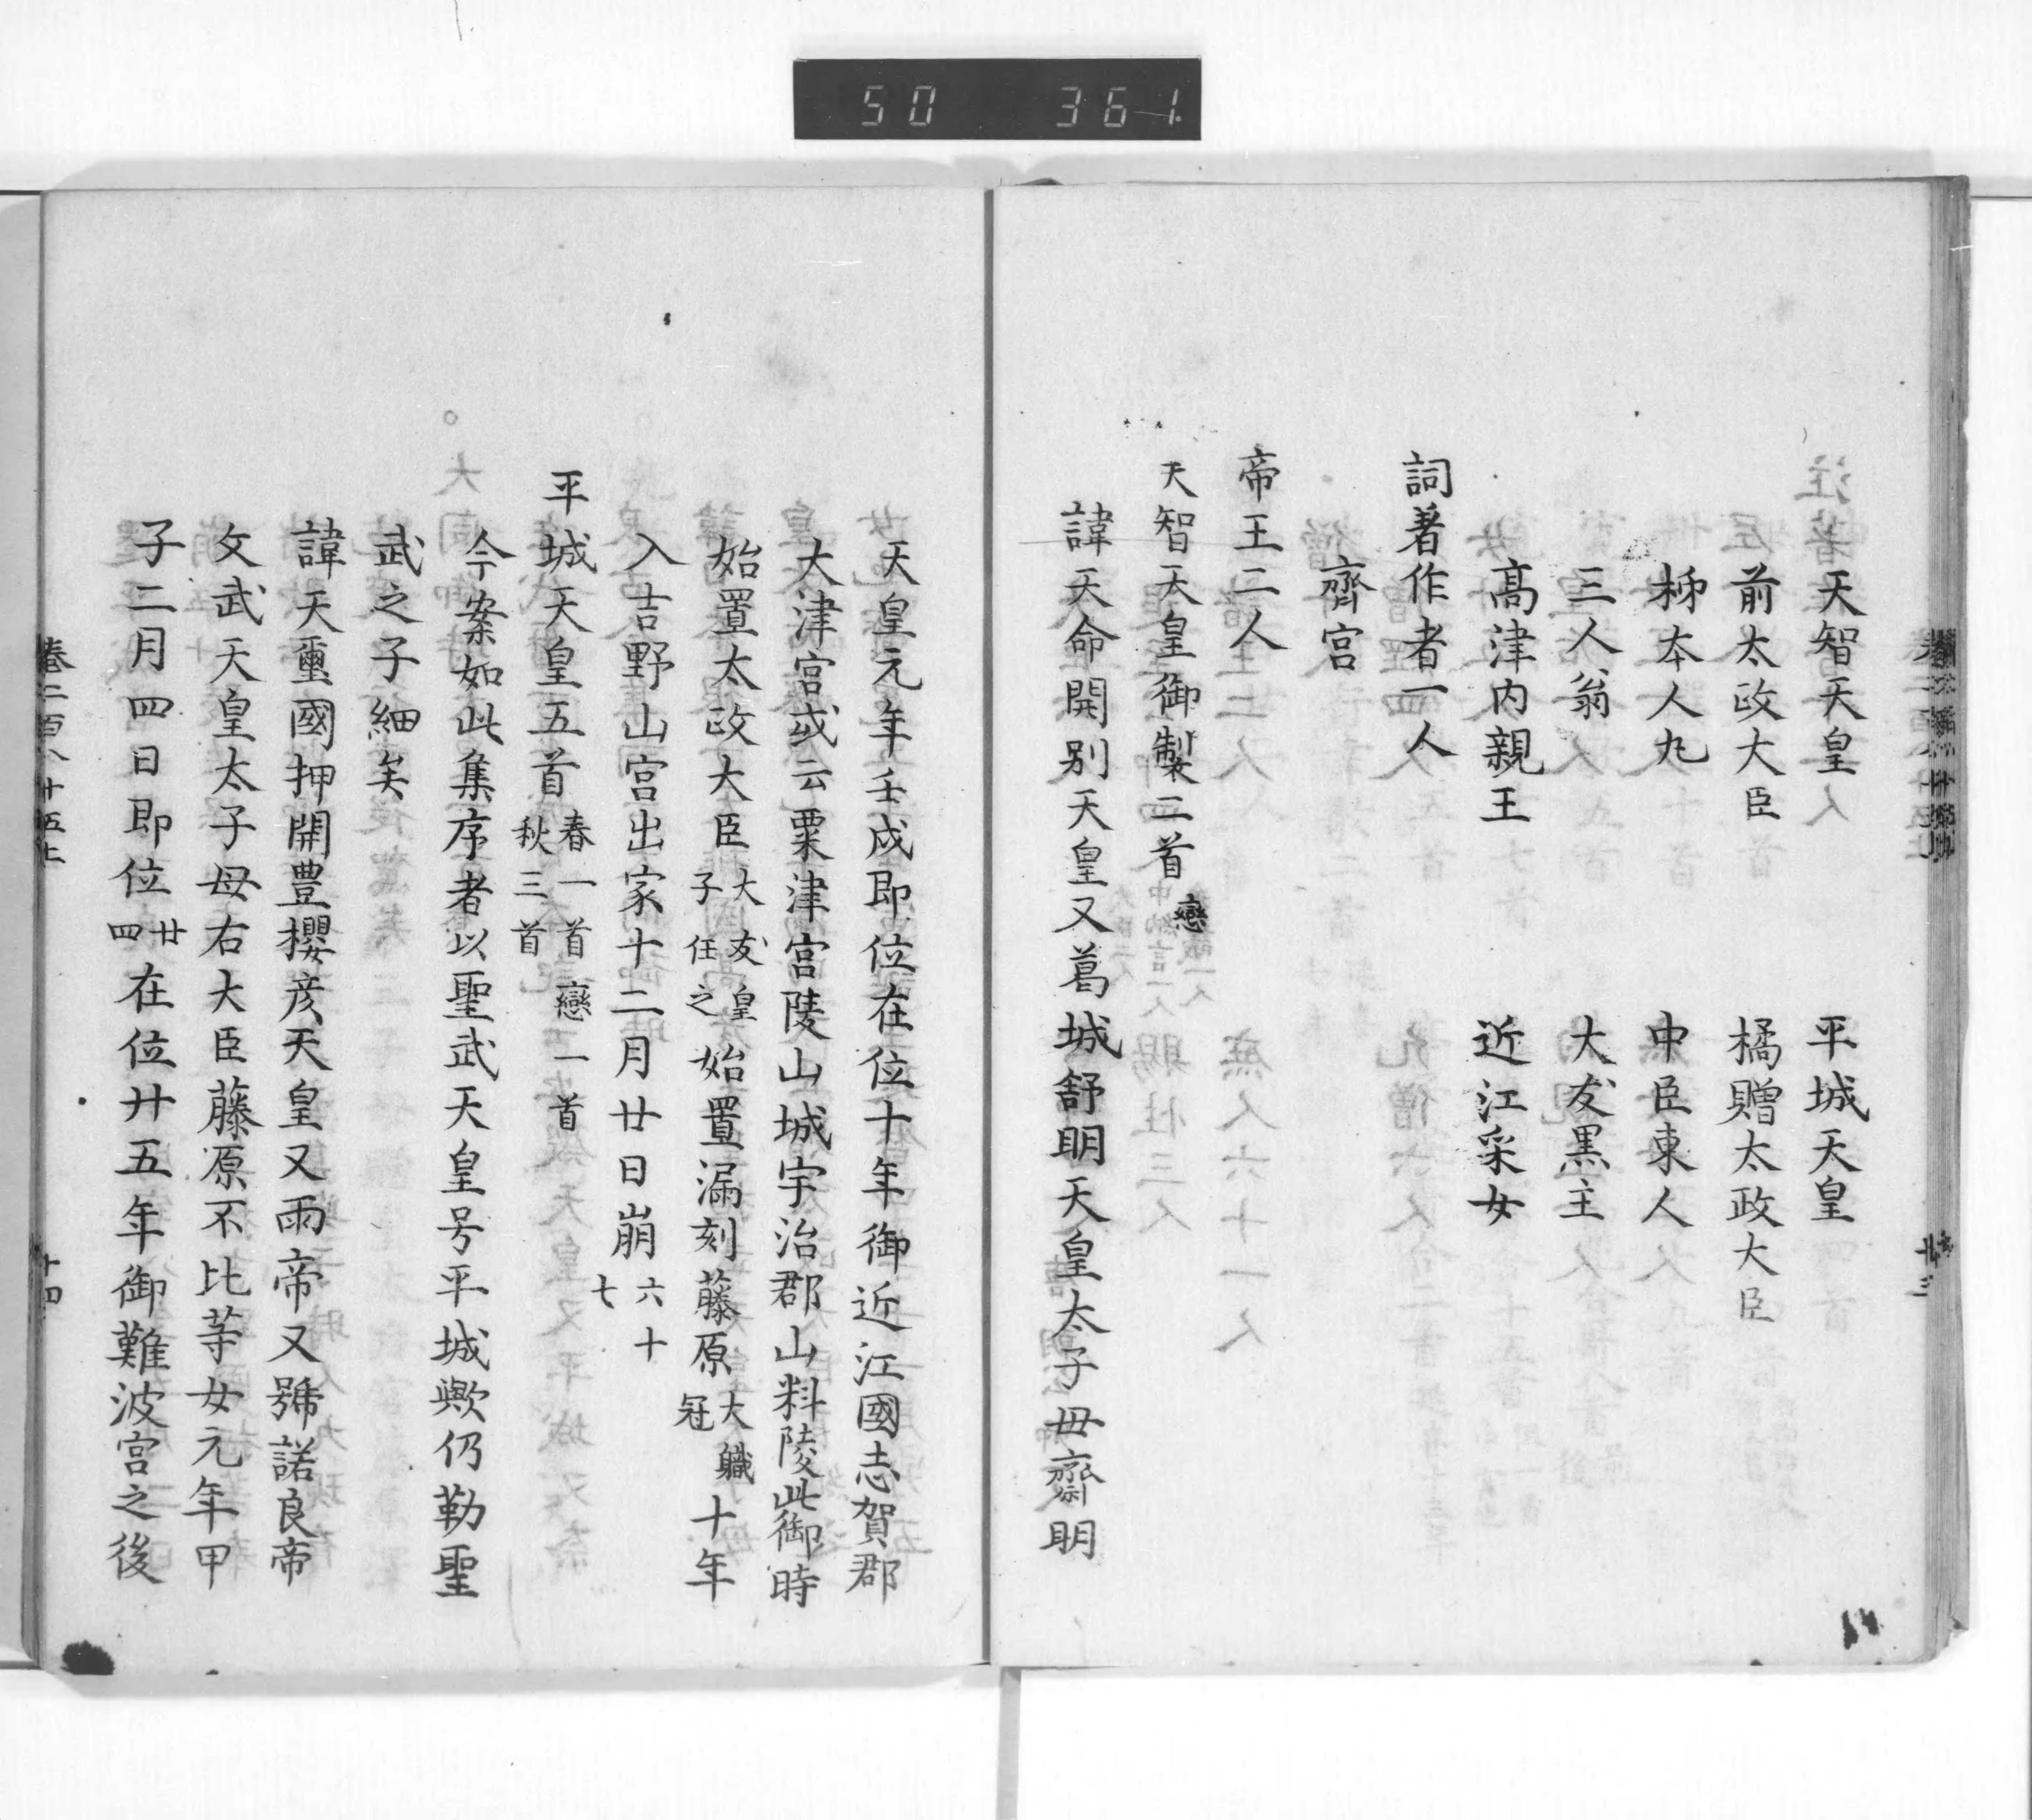 50 361
天智天皇 平城天皇
前太政大臣 橘贈太政大臣
柹本人丸 中臣東人
三人翁 大友黒主
高津内親王 近江采女
詞著作者一人
齊宮
帝王二人
天智天皇御製二首 戀
諱天命開別天皇又葛城舒明天皇太子母齋明
天皇元年壬戌即位在位十年御近江國志賀郡
大津宮或云粟津宮陵山城宇治郡山料陵此御時
始置太政大臣 大友皇子任之 始置漏刻藤原 大職冠 十年
入吉野山宮出家十二月廿日崩 六十七
平城天皇五首 春一首 戀一首 秋三首
今案如此集序者以聖武天皇号平城歟仍勒聖
武之子細矣
諱天璽國押開豊櫻彦天皇又雨帝又號諾良帝
文武天皇太子母右大臣藤原不比等女元年甲
子二月四日即位 廿四 在位廿五年御難波宮之後
卷二百八十五上
十四